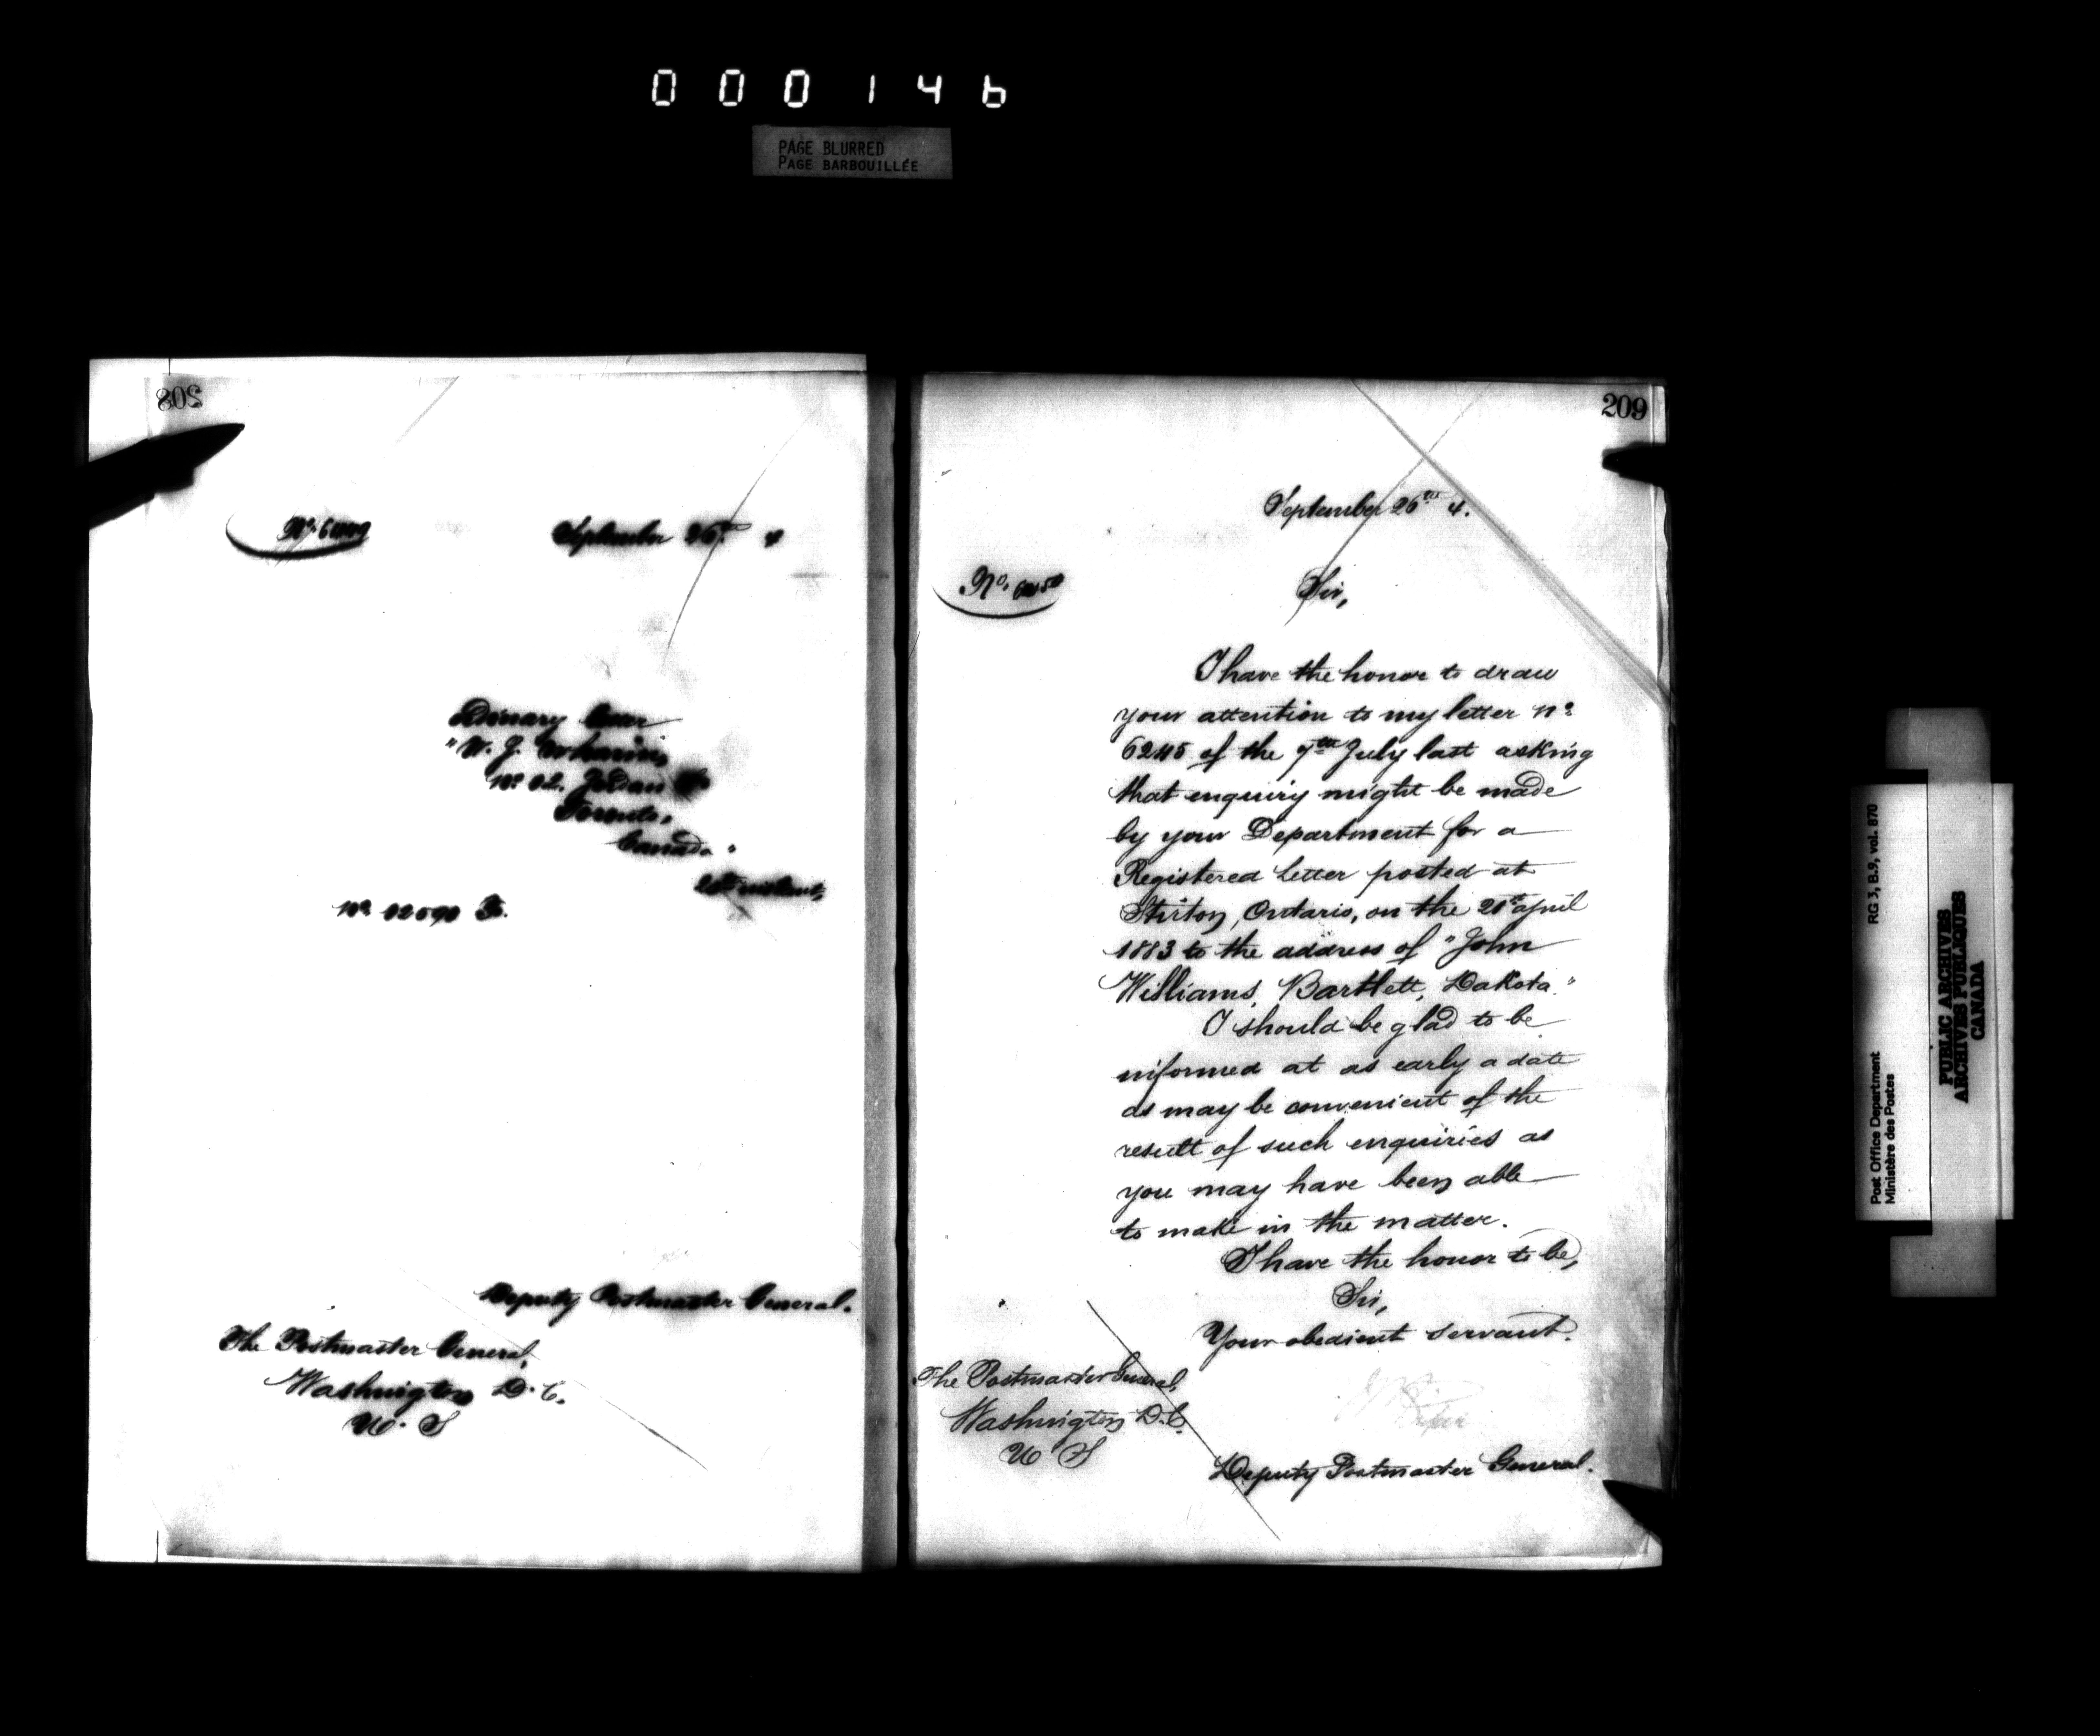 000146
PAGE BLURRED
PAGE BARBOUILLÉE
208
September 26th 4
Ordinary letter
"W. J.
No 82. Jordan St
Toronto,
Canada."
instant,
Deputy Postmaster General.
The Postmaster General,
Washington D. C.
U. S
209
September 26th 4.
No.
Sir,
I have the honor to draw
your attention to my letter No
6245 of the 9th July last asking
that enquiry might be made
by your Department for a
Registered letter posted at
Stirton, Ontario, on the 21st April
1883 to the address of "John
Williams, Bartlett, Dakota."
I should be glad to be
informed at as early a date
as may be convenient of the
result of such enquiries as
you may have been able
to make in the matter.
I have the honor to be,
Sir,
Your obedient servant.
The Postmaster General,
Washington D.C.
U S
Deputy Postmaster General.
Post Office Department
Ministère des Postes
RG 3, B.9, vol. 870
PUBLIC ARCHIVES
ARCHIVES PUBLIQUES
CANADA